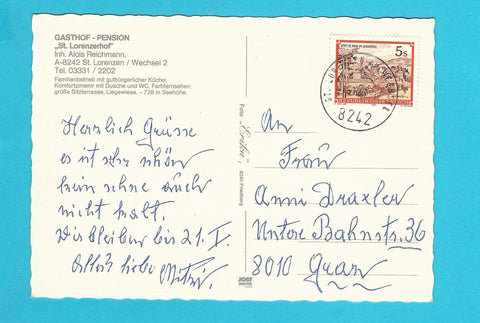 GASTHOF - PENSION
„St. Lorenzerhof"
Inh. Alois Reichmann,
A-8242 St. Lorenzen / Wechsel 2
Tel. 03331 / 2202
Familienbetrieb mit gutbürgerlicher Küche;
Komfortzimmer mit Dusche und WC, Farbfernsehen,
große Sitzterrasse, Liegewiese. – 728 m Seehöhe.
Herzlich Grüsse
es ist sehr schön
kein Schnee auch
nicht kalt.
Wir bleiben bis 21. I.
Alles liebe Mitzi.
Foto „Erika" 8240 Friedberg
JOST
5s
REPUBLIK ÖSTERREICH
8242
An
Frau
Anni Draxler
Untere Bahnstr. 36
8010 Graz